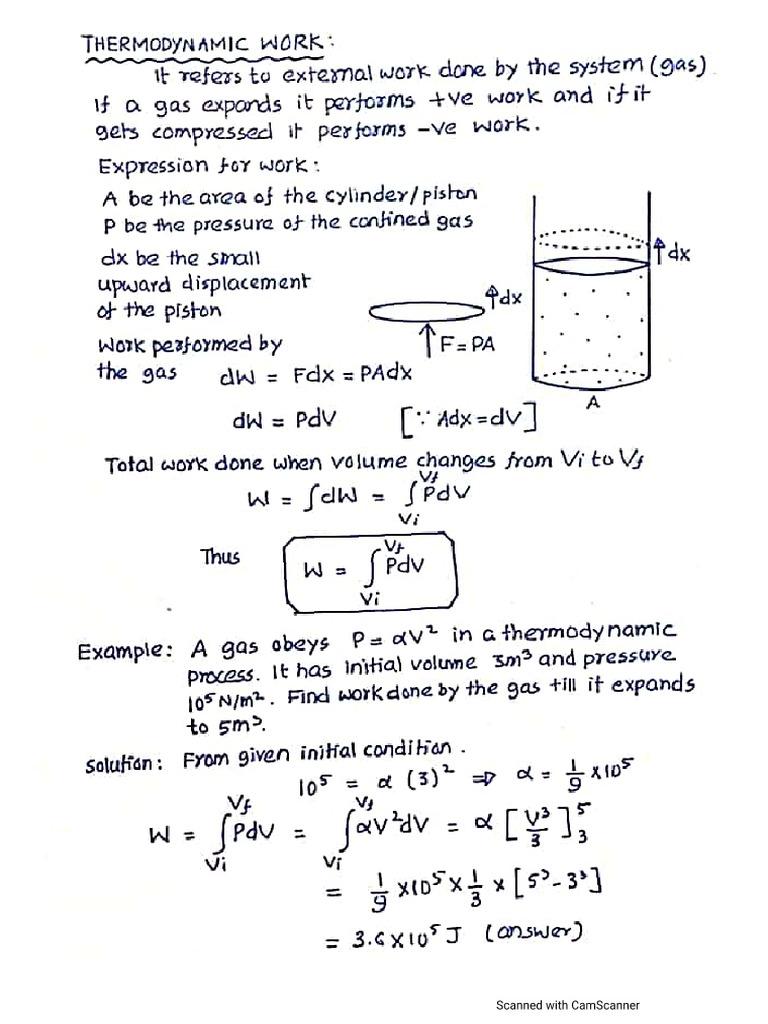 THERMODYNAMIC WORK:
It refers to external work done by the system (gas)
If a gas expands it performs +ve work and if it
gets compressed it performs -ve work.
Expression for work:
A be the area of the cylinder/piston
P be the pressure of the confined gas
dx be the small
upward displacement
of the piston
dx
F = PA
dx
A
Work performed by
the gas dW = Fdx = PAdx
dW = PdV [∵ Adx = dV]
Total work done when volume changes from Vi to Vf
W = ∫dW = ∫_Vi^Vf PdV
Thus W = ∫_Vi^Vf PdV
Example: A gas obeys P = αV² in a thermodynamic
process. It has initial volume 3m³ and pressure
10⁵ N/m². Find work done by the gas till it expands
to 5m³.
Solution: From given initial condition.
10⁵ = α (3)² ⇒ α = 1/9 × 10⁵
W = ∫_Vi^Vf PdV = ∫_Vi^Vf αV²dV = α [V³/3]_3^5
= 1/9 × 10⁵ × 1/3 × [5³ - 3³]
= 3.6 × 10⁵ J (answer)
Scanned with CamScanner